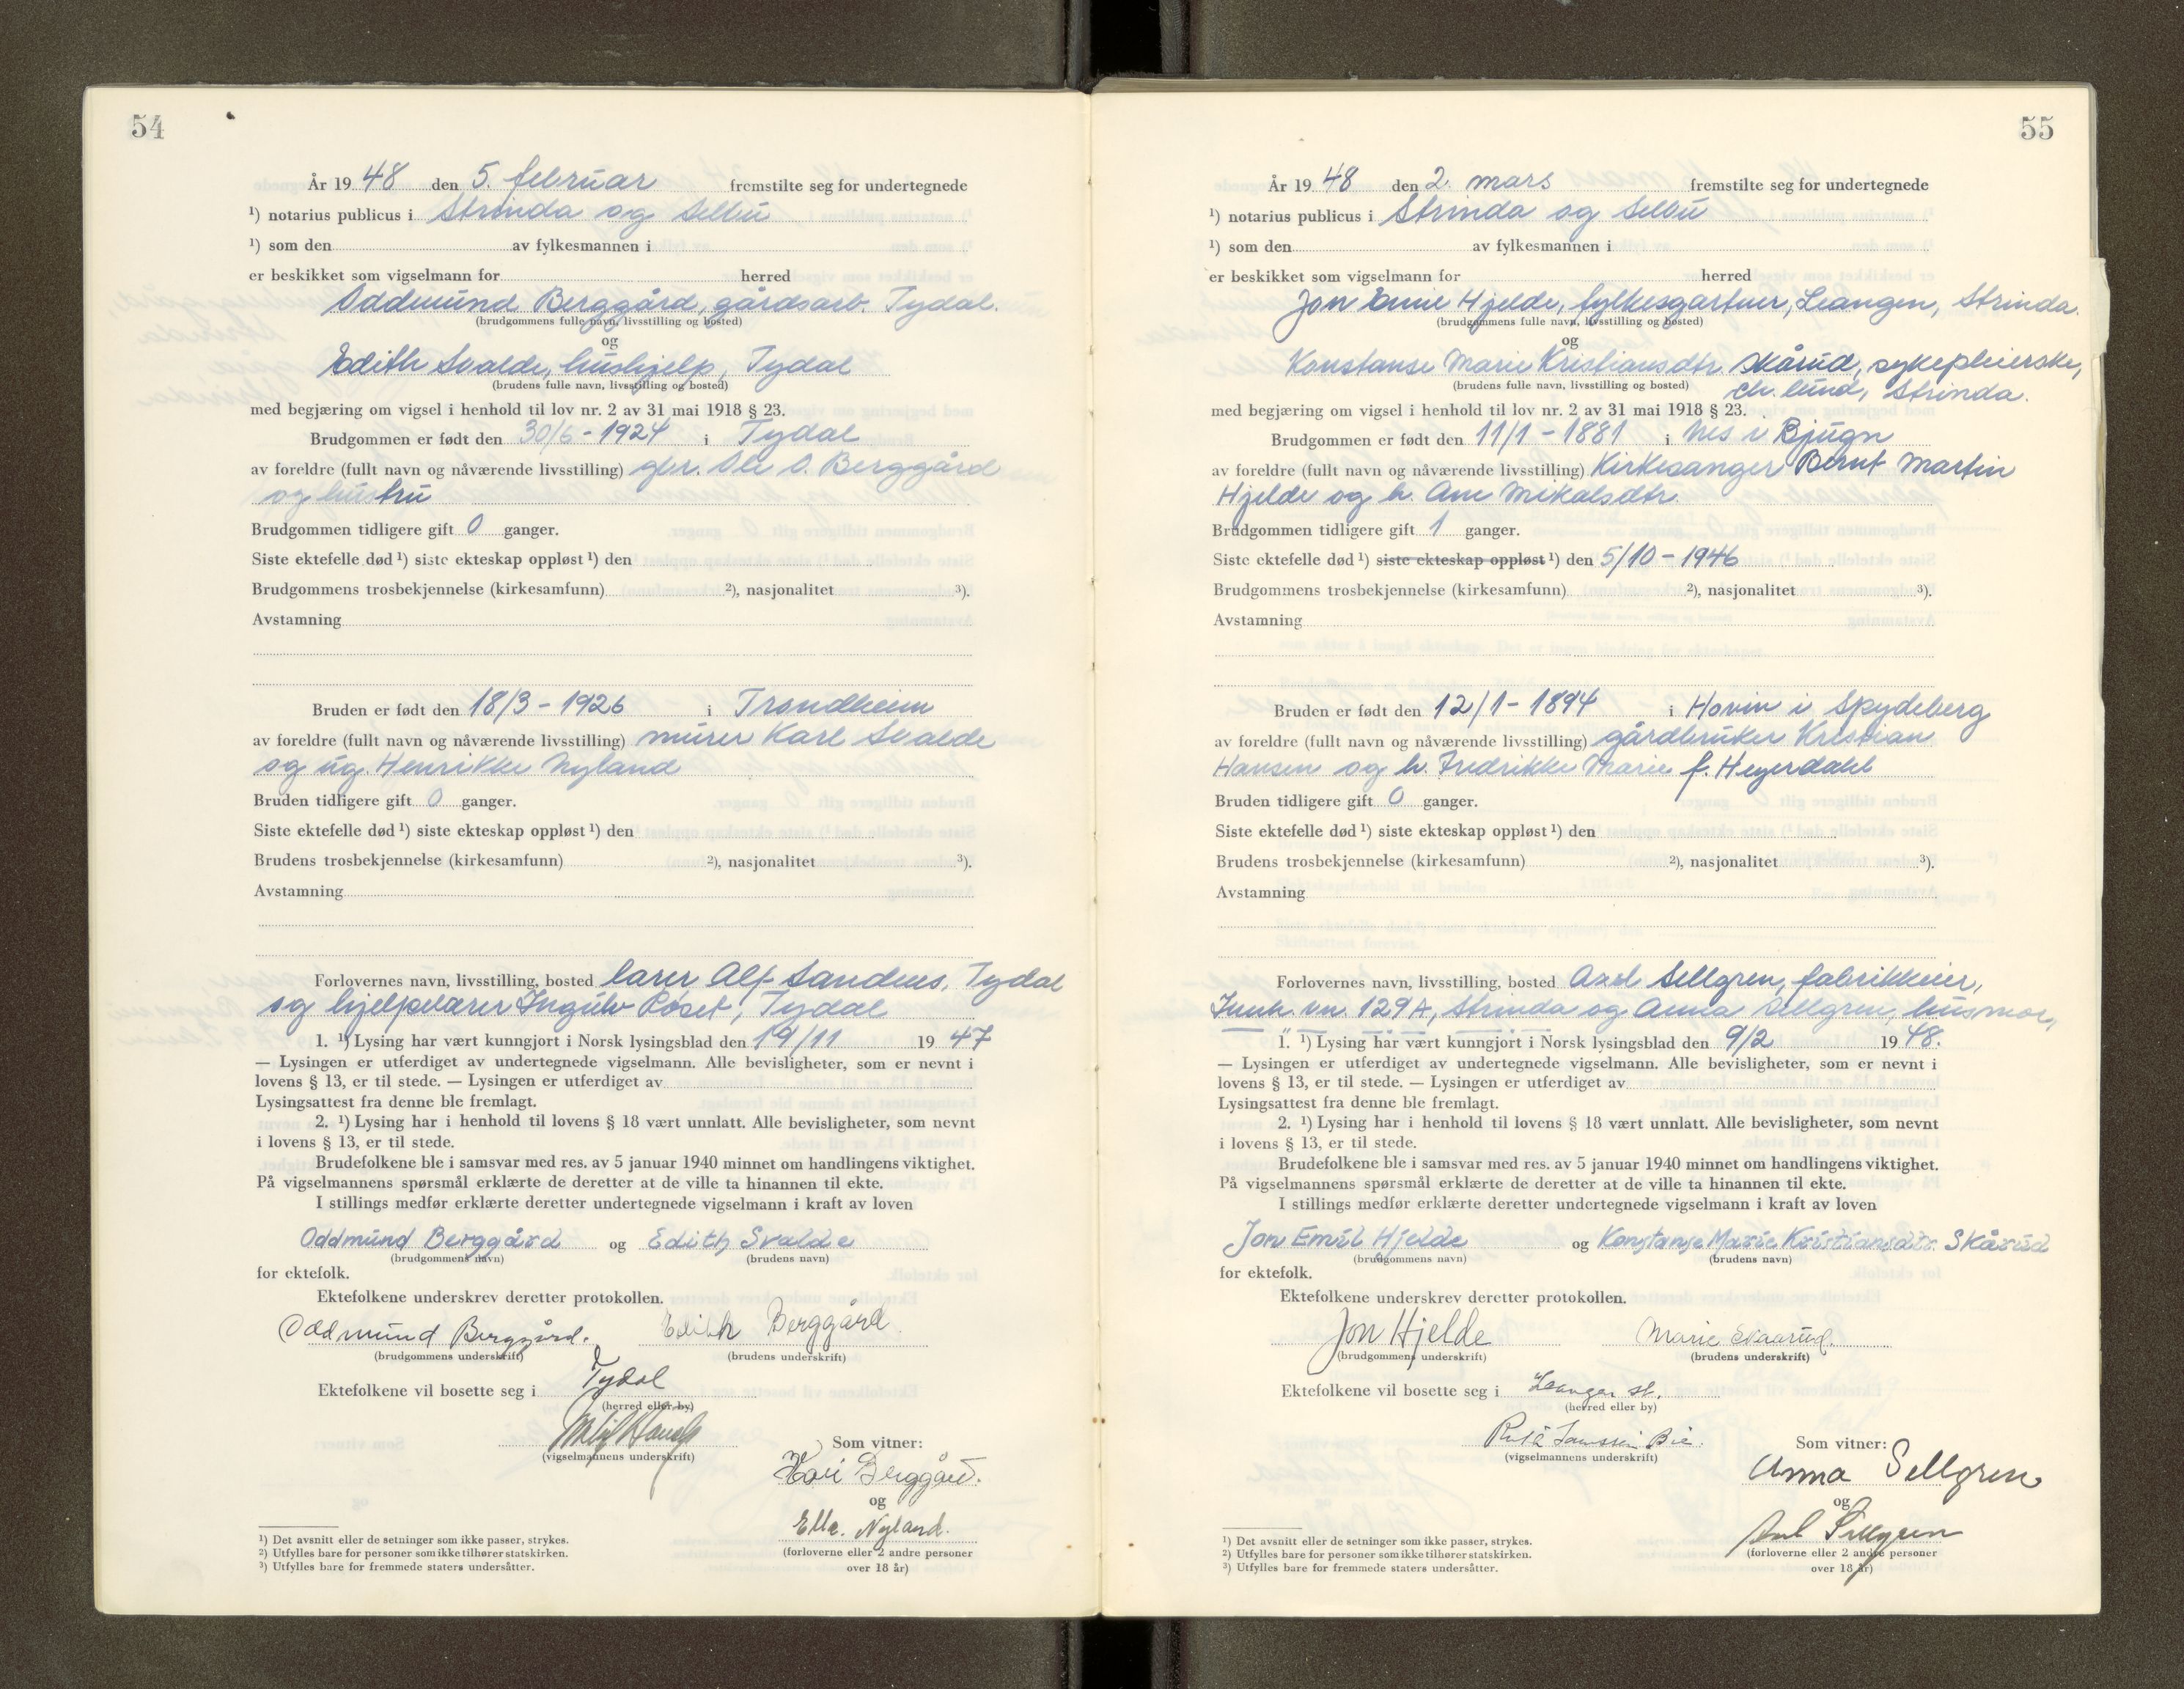 54
År 19 48 den 5. februar fremstilte seg for undertegnede
¹) notarius publicus i Strinda og Selbu
¹) som den av fylkesmannen i
er beskikket som vigselmann for herred
Oddmund Berggård, gårdsarb. Tydal.
(brudgommens fulle navn, livsstilling og bosted)
og
Edith Svalde, hushjelp, Tydal
(brudens fulle navn, livsstilling og bosted)
med begjæring om vigsel i henhold til lov nr. 2 av 31 mai 1918 § 23.
Brudgommen er født den 30/6 - 1924 i Tydal
av foreldre (fullt navn og nåværende livsstilling) gbr. Ole O. Berggård
og hustru
Brudgommen tidligere gift 0 ganger.
Siste ektefelle død ¹) siste ekteskap oppløst ¹) den
Brudgommens trosbekjennelse (kirkesamfunn) ²), nasjonalitet ³).
Avstamning
Bruden er født den 18/3 - 1926 i Trondheim
av foreldre (fullt navn og nåværende livsstilling) murer Karl Svalde
og ug. Henrikke Nyland
Bruden tidligere gift 0 ganger.
Siste ektefelle død ¹) siste ekteskap oppløst ¹) den
Brudens trosbekjennelse (kirkesamfunn) ²), nasjonalitet ³).
Avstamning
Forlovernes navn, livsstilling, bosted lærer Alf Sandnes, Tydal
og hjelpelærer Ingulv Røset, Tydal
1. ¹) Lysing har vært kunngjort i Norsk lysingsblad den 19/11 19 47
— Lysingen er utferdiget av undertegnede vigselmann. Alle bevisligheter, som er nevnt i
lovens § 13, er til stede. — Lysingen er utferdiget av
Lysingsattest fra denne ble fremlagt.
2. ¹) Lysing har i henhold til lovens § 18 vært unnlatt. Alle bevisligheter, som nevnt
i lovens § 13, er til stede.
Brudefolkene ble i samsvar med res. av 5 januar 1940 minnet om handlingens viktighet.
På vigselmannens spørsmål erklærte de deretter at de ville ta hinannen til ekte.
I stillings medfør erklærte deretter undertegnede vigselmann i kraft av loven
Oddmund Berggård og Edith Svalde
(brudgommens navn) (brudens navn)
for ektefolk.
Ektefolkene underskrev deretter protokollen.
Oddmund Berggård. Edith Berggård
(brudgommens underskrift) (brudens underskrift)
Ektefolkene vil bosette seg i Tydal
(herred eller by)
(vigselmannens underskrift)
Som vitner:
Kari Berggård.
og
Ella. Nyland.
(forloverne eller 2 andre personer
over 18 år)
¹) Det avsnitt eller de setninger som ikke passer, strykes.
²) Utfylles bare for personer som ikke tilhører statskirken.
³) Utfylles bare for fremmede staters undersåtter.
55
År 19 48 den 2. mars fremstilte seg for undertegnede
¹) notarius publicus i Strinda og Selbu
¹) som den av fylkesmannen i
er beskikket som vigselmann for herred
Jon Emil Hjelde, fylkesgartner, Leangen, Strinda.
(brudgommens fulle navn, livsstilling og bosted)
og
Konstanse Marie Kristiansdtr. Skårud, sykepleierske,
Ch.lund, Strinda.
(brudens fulle navn, livsstilling og bosted)
med begjæring om vigsel i henhold til lov nr. 2 av 31 mai 1918 § 23.
Brudgommen er født den 11/1 - 1881 i Nes i Bjugn
av foreldre (fullt navn og nåværende livsstilling) Kirkesanger Bernt Martin
Hjelde og h. Ane Mikalsdtr.
Brudgommen tidligere gift 1 ganger.
Siste ektefelle død ¹) siste ekteskap oppløst ¹) den 5/10 - 1946
Brudgommens trosbekjennelse (kirkesamfunn) ²), nasjonalitet ³).
Avstamning
Bruden er født den 12/1 - 1894 i Hovin i Spydeberg
av foreldre (fullt navn og nåværende livsstilling) gårdbruker Kristian
Hansen og h. Fredrikke Marie f. Heyerdahl
Bruden tidligere gift 0 ganger.
Siste ektefelle død ¹) siste ekteskap oppløst ¹) den
Brudens trosbekjennelse (kirkesamfunn) ²), nasjonalitet ³).
Avstamning
Forlovernes navn, livsstilling, bosted Axel Sellgren, fabrikkeier,
vn. 129A, Strinda og Anna Sellgren, husmor,
1. ¹) Lysing har vært kunngjort i Norsk lysingsblad den 9/2 19 48.
— Lysingen er utferdiget av undertegnede vigselmann. Alle bevisligheter, som er nevnt i
lovens § 13, er til stede. — Lysingen er utferdiget av
Lysingsattest fra denne ble fremlagt.
2. ¹) Lysing har i henhold til lovens § 18 vært unnlatt. Alle bevisligheter, som nevnt
i lovens § 13, er til stede.
Brudefolkene ble i samsvar med res. av 5 januar 1940 minnet om handlingens viktighet.
På vigselmannens spørsmål erklærte de deretter at de ville ta hinannen til ekte.
I stillings medfør erklærte deretter undertegnede vigselmann i kraft av loven
Jon Emil Hjelde og Konstanse Marie Kristiansdtr. Skårud
(brudgommens navn) (brudens navn)
for ektefolk.
Ektefolkene underskrev deretter protokollen.
Jon Hjelde Marie Skaarud.
(brudgommens underskrift) (brudens underskrift)
Ektefolkene vil bosette seg i Leangen st.
(herred eller by)
(vigselmannens underskrift)
Som vitner:
Anna Sellgren
og
Axel Sellgren
(forloverne eller 2 andre personer
over 18 år)
¹) Det avsnitt eller de setninger som ikke passer, strykes.
²) Utfylles bare for personer som ikke tilhører statskirken.
³) Utfylles bare for fremmede staters undersåtter.